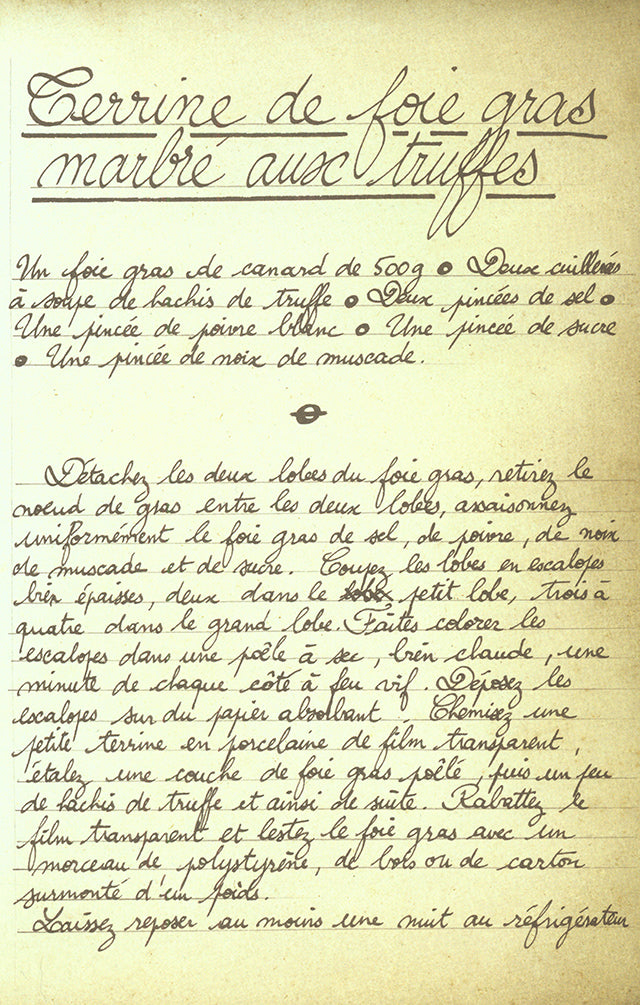 Terrine de foie gras
marbré aux truffes
Un foie gras de canard de 500g • Deux cuillerées
à soupe de hachis de truffe • Deux pincées de sel •
Une pincée de poivre blanc • Une pincée de sucre
• Une pincée de noix de muscade.
Détachez les deux lobes du foie gras, retirez le
noeud de gras entre les deux lobes, assaisonnez
uniformément le foie gras de sel, de poivre, de noix
de muscade et de sucre. Coupez les lobes en escalopes
bien épaisses, deux dans le petit lobe, trois à
quatre dans le grand lobe. Faites colorer les
escalopes dans une poêle à sec, bien chaude, une
minute de chaque côté à feu vif. Déposez les
escalopes sur du papier absorbant Chemisez une
petite terrine en porcelaine de film transparent,
étalez une couche de foie gras poêlé, puis un peu
de hachis de truffe et ainsi de suite. Rabattez le
film transparent et lestez le foie gras avec un
morceau de polystyrène, de bois ou de carton
surmonté d'un poids.
Laissez reposer au moins une nuit au réfrigérateur